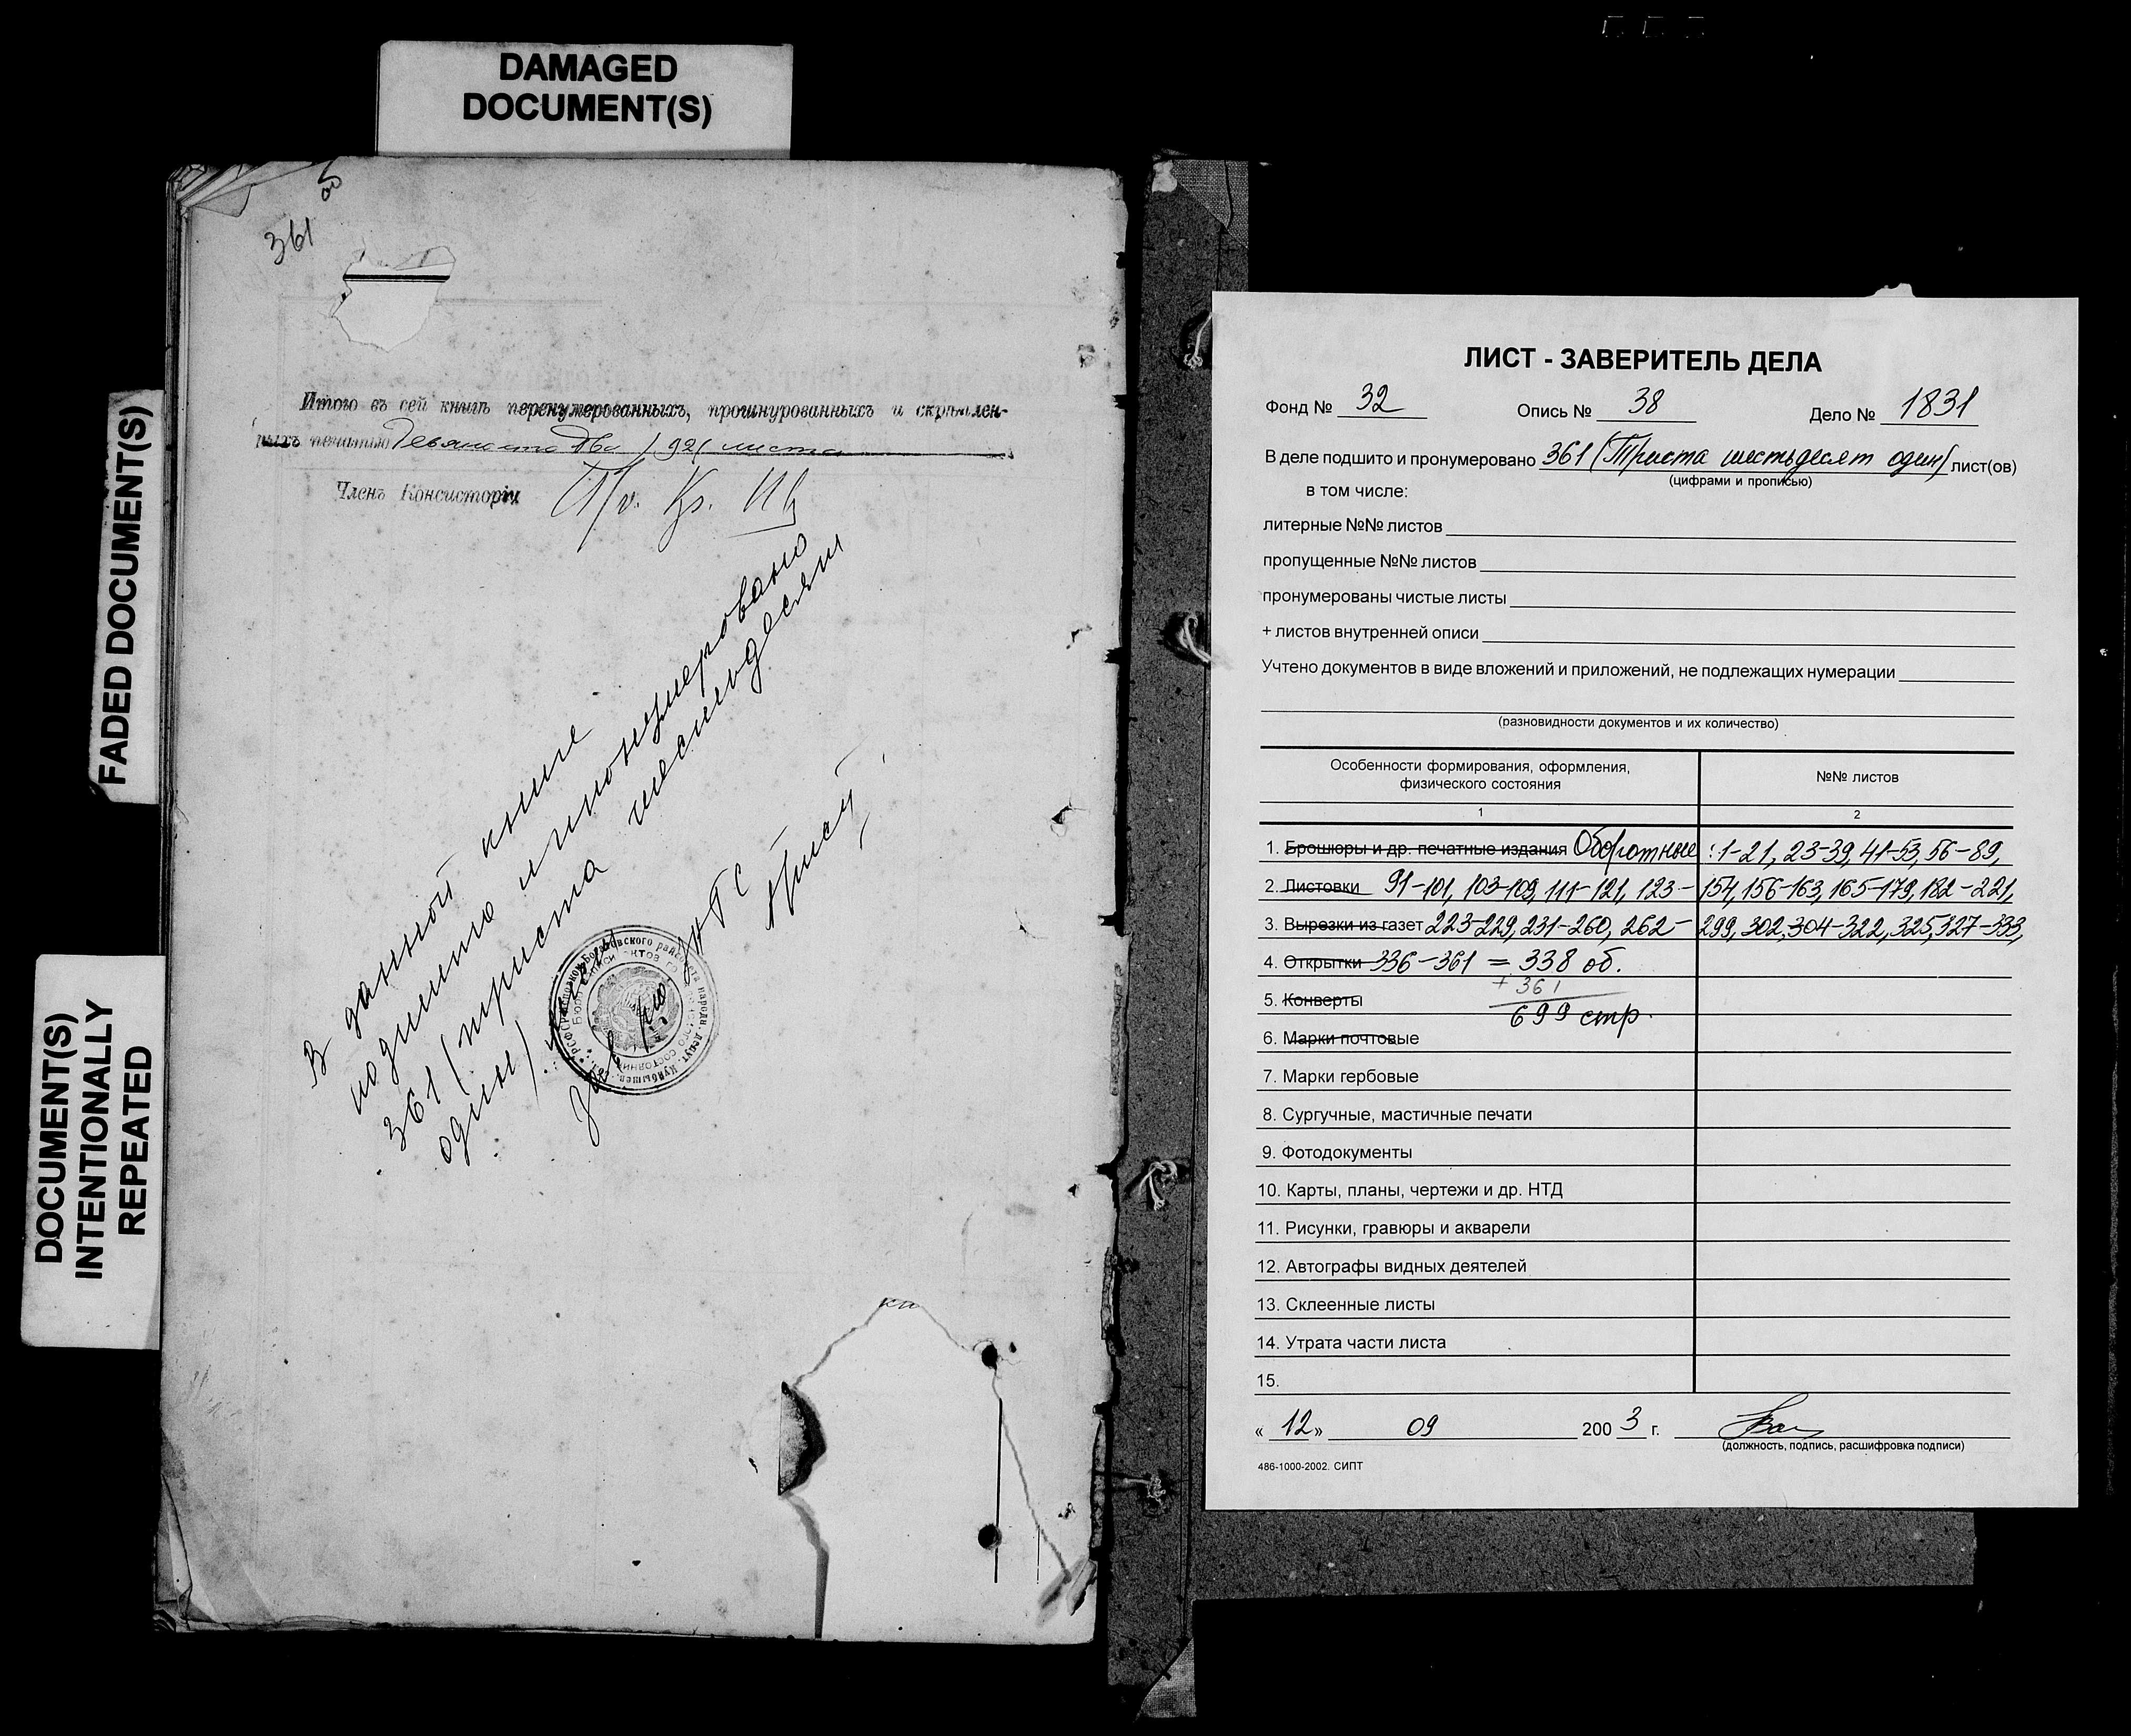 DAMAGED
DOCUMENT(S)
FADED DOCUMENT(S)
DOCUMENT(S)
INTENTIONALLY
REPEATED
361 об
Итого въ сей книгѣ перенумерованныхъ, прошнурованныхъ и скрѣплен-
ныхъ печатью Девяносто два /92/ листа
Членъ Консисторіи
В данной книге
подшито и пронумеровано
361 (триста шестьдесят
один)
ЛИСТ - ЗАВЕРИТЕЛЬ ДЕЛА
Фонд № 32 Опись № 38 Дело № 1831
В деле подшито и пронумеровано 361 (Триста шестьдесят один) лист(ов)
(цифрами и прописью)
в том числе:
литерные №№ листов
пропущенные №№ листов
пронумерованы чистые листы
+ листов внутренней описи
Учтено документов в виде вложений и приложений, не подлежащих нумерации
(разновидности документов и их количество)
Особенности формирования, оформления,
физического состояния
№№ листов
1 2
1. Брошюры и др. печатные издания Оборотные: 1-21, 23-39, 41-53, 56-89,
2. Листовки 91-101, 103-109, 111-121, 123-154, 156-163, 165-179, 182-221,
3. Вырезки из газет 223-229, 231-260, 262-299, 302, 304-322, 325, 327-333,
4. Открытки 336-361 = 338 об.
+ 361
5. Конверты
699 стр.
6. Марки почтовые
7. Марки гербовые
8. Сургучные, мастичные печати
9. Фотодокументы
10. Карты, планы, чертежи и др. НТД
11. Рисунки, гравюры и акварели
12. Автографы видных деятелей
13. Склеенные листы
14. Утрата части листа
15.
« 12 » 09 2003 г.
(должность, подпись, расшифровка подписи)
486-1000-2002. СИПТ